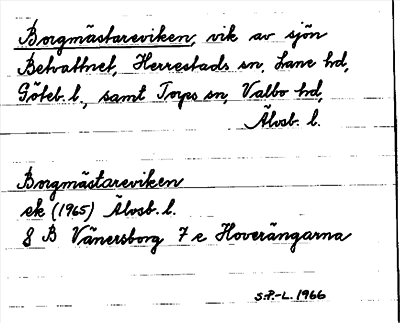 Borgmästareviken, vik av sjön
Betvattnet, Herrestads sn, Lane hd,
Göteb. l., samt Torps sn, Valbo hd,
Älvsb. l.
Borgmästareviken
ek (1965) Älvsb. l.
8 B Vänersborg 7 e Hoverängarna
S.P.-L. 1966